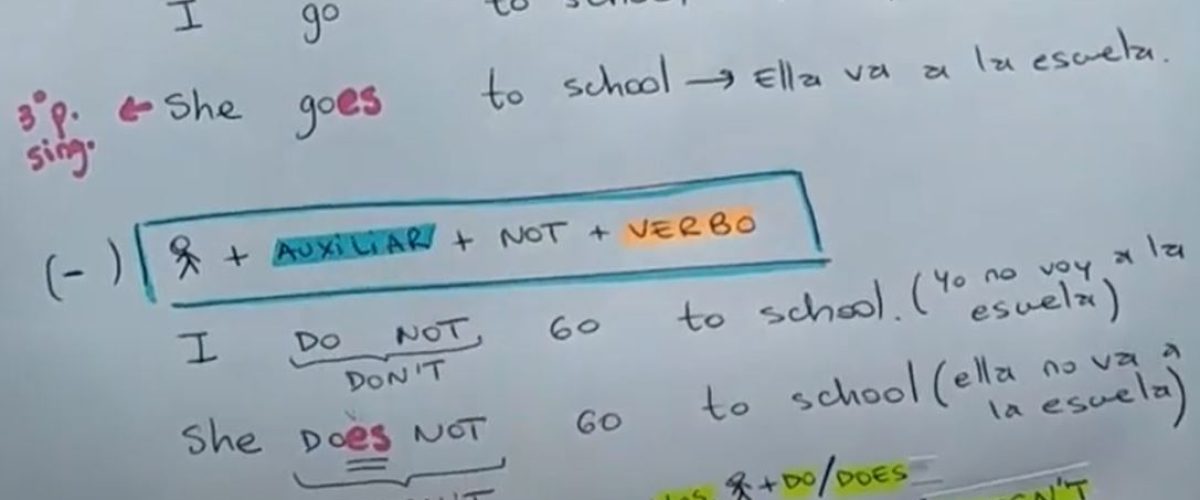 I go to
3° p. sing. ← She goes to school → Ella va a la escuela.
(-) + AUXILIAR + NOT + VERBO
I DO NOT GO to school. (Yo no voy a la escuela)
DON'T
She DOES NOT GO to school (ella no va a la escuela)
+ DO/DOES